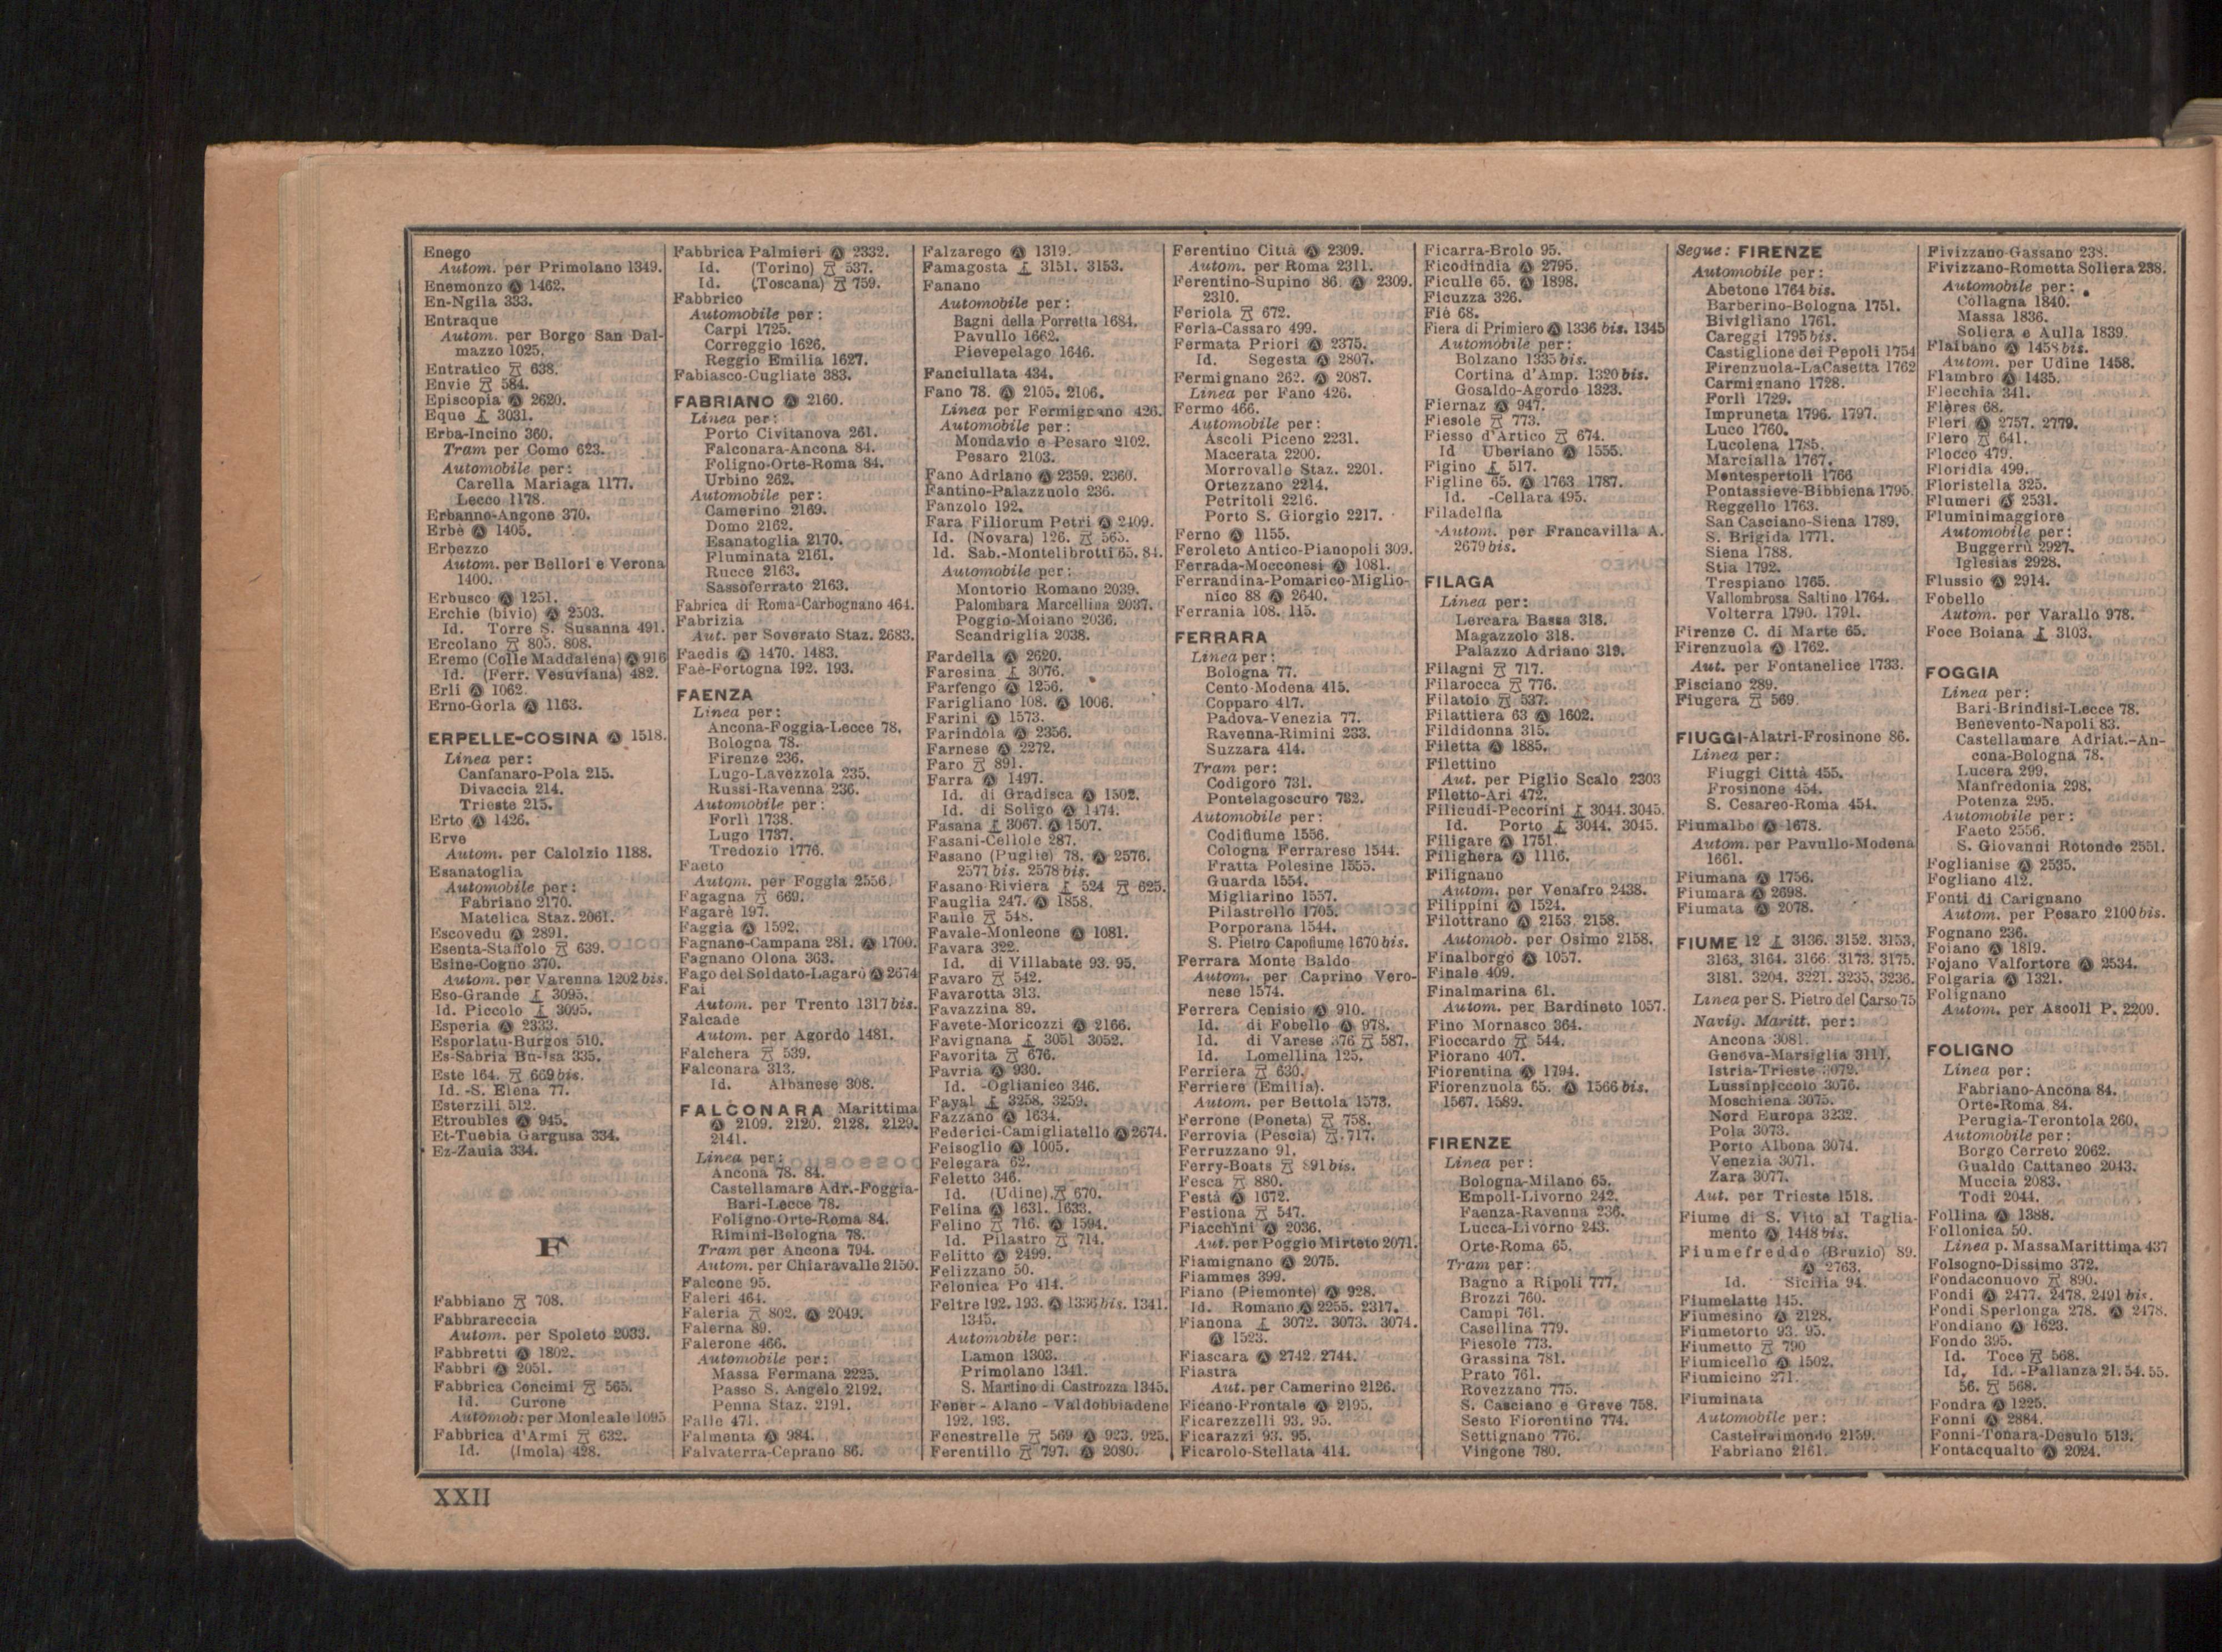 Enego
Autom. per Primolano 1349.
Enemonzo Ⓐ 1462.
En-Ngila 333.
Entraque
Autom. per Borgo San Dal-
mazzo 1025.
Entratico 638.
Envie 584.
Episcopia Ⓐ 2620.
Eque 3031.
Erba-Incino 360.
Tram per Como 623.
Automobile per:
Carella Mariaga 1177.
Lecco 1178.
Erbanno-Angone 370.
Erbè Ⓐ 1405.
Erbezzo
Autom. per Bellori e Verona
1400.
Erbusco Ⓐ 1251.
Erchie (bivio) Ⓐ 2503.
Id. Torre S. Susanna 491.
Ercolano 805. 808.
Eremo (Colle Maddalena) Ⓐ 916
Id. (Ferr. Vesuviana) 482.
Erli Ⓐ 1062
Erno-Gorla Ⓐ 1163.
ERPELLE-COSINA Ⓐ 1518.
Linea per:
Canfanaro-Pola 215.
Divaccia 214.
Trieste 215.
Erto Ⓐ 1426.
Erve
Autom. per Calolzio 1188.
Esanatoglia
Automobile per:
Fabriano 2170.
Matelica Staz. 2061.
Escovedu Ⓐ 2891.
Esenta-Staffolo 639.
Esine-Cogno 370.
Autom. per Varenna 1202 bis.
Eso-Grande 3095.
Id. Piccolo 3095.
Esperia Ⓐ 2333.
Esporlatu-Burgos 510.
Es-Sabria Bu-Isa 335.
Este 164. 669 bis.
Id. -S. Elena 77.
Esterzili 512.
Etroubles Ⓐ 945.
Et-Tuebia Gargusa 334.
Ez-Zauia 334.
F
Fabbiano 708.
Fabbrareccia
Autom. per Spoleto 2033.
Fabbretti Ⓐ 1802.
Fabbri Ⓐ 2051.
Fabbrica Concimi 565.
Id. Curone
Automob: per Monleale 1095
Fabbrica d'Armi 632.
Id. (Imola) 428.
Fabbrica Palmieri Ⓐ 2332.
Id. (Torino) 537.
Id. (Toscana) 759.
Fabbrico
Automobile per:
Carpi 1725.
Correggio 1626.
Reggio Emilia 1627.
Fabiasco-Cugliate 383.
FABRIANO Ⓐ 2160.
Linea per:
Porto Civitanova 261.
Falconara-Ancona 84.
Foligno-Orte-Roma 84.
Urbino 262.
Automobile per:
Camerino 2169.
Domo 2162.
Esanatoglia 2170.
Fluminata 2161.
Rucce 2163.
Sassoferrato 2163.
Fabrica di Roma-Carbognano 464.
Fabrizia
Aut. per Soverato Staz. 2683.
Faedis Ⓐ 1470. 1483.
Faè-Fortogna 192. 193.
FAENZA
Linea per:
Ancona-Foggia-Lecce 78.
Bologna 78.
Firenze 236.
Lugo-Lavezzola 235.
Russi-Ravenna 236.
Automobile per:
Forlì 1738.
Lugo 1737.
Tredozio 1776.
Faeto
Autom. per Foggia 2556.
Fagagna 669.
Fagarè 197.
Faggia Ⓐ 1592.
Fagnano-Campana 281. Ⓐ 1700.
Fagnano Olona 363.
Fago del Soldato-Lagarò Ⓐ 2674
Fai
Autom. per Trento 1317 bis.
Falcade
Autom. per Agordo 1481.
Falchera 539.
Falconara 313.
Id. Albanese 308.
FALCONARA Marittima
Ⓐ 2109. 2120. 2128. 2129.
2141.
Linea per:
Ancona 78. 84.
Castellamare Adr.-Foggia-
Bari-Lecce 78.
Foligno-Orte-Roma 84.
Rimini-Bologna 78.
Tram per Ancona 794.
Autom. per Chiaravalle 2150.
Falcone 95.
Faleri 464.
Faleria 802. Ⓐ 2049.
Falerna 89.
Falerone 466.
Automobile per:
Massa Fermana 2225.
Passo S. Angelo 2192.
Penna Staz. 2191.
Falle 471.
Falmenta Ⓐ 984.
Falvaterra-Ceprano 86.
Falzarego Ⓐ 1319.
Famagosta 3151. 3153.
Fanano
Automobile per:
Bagni della Porretta 1684.
Pavullo 1662.
Pievepelago 1646.
Fanciullata 434.
Fano 78. Ⓐ 2105. 2106.
Linea per Fermignano 426.
Automobile per:
Mondavio e Pesaro 2102.
Pesaro 2103.
Fano Adriano Ⓐ 2359. 2360.
Fantino-Palazzuolo 236.
Fanzolo 192.
Fara Filiorum Petri Ⓐ 2409.
Id. (Novara) 126. 565.
Id. Sab.-Montelibrotti 65. 84.
Automobile per:
Montorio Romano 2039.
Palombara Marcellina 2037.
Poggio-Moiano 2036.
Scandriglia 2038.
Fardella Ⓐ 2620.
Faresina 3076.
Farfengo Ⓐ 1256.
Farigliano 108. Ⓐ 1006.
Farini Ⓐ 1573.
Farindola Ⓐ 2356.
Farnese Ⓐ 2272.
Faro 891.
Farra Ⓐ 1497.
Id. di Gradisca Ⓐ 1502.
Id. di Soligo Ⓐ 1474.
Fasana 3067. Ⓐ 1507.
Fasani-Cellole 287.
Fasano (Puglie) 78. Ⓐ 2576.
2577 bis. 2578 bis.
Fasano Riviera 524 625.
Fauglia 247. Ⓐ 1858.
Faule 548.
Favale-Monleone Ⓐ 1081.
Favara 322.
Id. di Villabate 93. 95.
Favaro 542.
Favarotta 313.
Favazzina 89.
Favete-Moricozzi Ⓐ 2166.
Favignana 3051 3052.
Favorita 676.
Favria Ⓐ 930.
Id. -Oglianico 346.
Fayal 3258. 3259.
Fazzano Ⓐ 1634.
Federici-Camigliatello Ⓐ 2674.
Feisoglio Ⓐ 1005.
Felegara 62.
Feletto 346.
Id. (Udine) 670.
Felina Ⓐ 1631. 1633.
Felino 716. Ⓐ 1594.
Id. Pilastro 714.
Felitto Ⓐ 2499.
Felizzano 50.
Felonica Po 414.
Feltre 192. 193. Ⓐ 1336 bis. 1341.
1345.
Automobile per:
Lamon 1303.
Primolano 1341.
S. Martino di Castrozza 1345.
Fener - Alano - Valdobbiadene
192. 193.
Fenestrelle 569 Ⓐ 923. 925.
Ferentillo 797. Ⓐ 2080.
Ferentino Città Ⓐ 2309.
Autom. per Roma 2311.
Ferentino-Supino 86. Ⓐ 2309.
2310.
Feriola 672.
Ferla-Cassaro 499.
Fermata Priori Ⓐ 2375.
Id. Segesta Ⓐ 2807.
Fermignano 262. Ⓐ 2087.
Linea per Fano 426.
Fermo 466.
Automobile per:
Ascoli Piceno 2231.
Macerata 2200.
Morrovalle Staz. 2201.
Ortezzano 2214.
Petritoli 2216.
Porto S. Giorgio 2217.
Ferno Ⓐ 1155.
Feroleto Antico-Pianopoli 309.
Ferrada-Mocconesi Ⓐ 1081.
Ferrandina-Pomarico-Miglio-
nico 88 Ⓐ 2640.
Ferrania 108. 115.
FERRARA
Linea per:
Bologna 77.
Cento-Modena 415.
Copparo 417.
Padova-Venezia 77.
Ravenna-Rimini 233.
Suzzara 414.
Tram per:
Codigoro 731.
Pontelagoscuro 732.
Automobile per:
Codifiume 1556.
Cologna Ferrarese 1544.
Fratta Polesine 1555.
Guarda 1554.
Migliarino 1557.
Pilastrello 1705.
Porporana 1544.
S. Pietro Capofiume 1670 bis.
Ferrara Monte Baldo
Autom. per Caprino Vero-
nese 1574.
Ferrera Cenisio Ⓐ 910.
Id. di Fobello Ⓐ 978.
Id. di Varese 376 587.
Id. Lomellina 125.
Ferriera 630.
Ferriere (Emilia).
Autom. per Bettola 1573.
Ferrone (Poneta) 758.
Ferrovia (Pescia) 717.
Ferruzzano 91.
Ferry-Boats 891 bis.
Fesca 880.
Festà Ⓐ 1672.
Festiona 547.
Fiacchini Ⓐ 2036.
Aut. per Poggio Mirteto 2071.
Fiamignano Ⓐ 2075.
Fiammes 399.
Fiano (Piemonte) Ⓐ 928.
Id. Romano Ⓐ 2255. 2317.
Fianona 3072. 3073. 3074.
Ⓐ 1523.
Fiascara Ⓐ 2742. 2744.
Fiastra
Aut. per Camerino 2126.
Ficano-Frontale Ⓐ 2195.
Ficarezzelli 93. 95.
Ficarazzi 93. 95.
Ficarolo-Stellata 414.
Ficarra-Brolo 95.
Ficodindia Ⓐ 2795.
Ficulle 65. Ⓐ 1898.
Ficuzza 326.
Fiè 68.
Fiera di Primiero Ⓐ 1336 bis. 1345
Automobile per:
Bolzano 1335 bis.
Cortina d'Amp. 1320 bis.
Gosaldo-Agordo 1323.
Fiernaz Ⓐ 947.
Fiesole 773.
Fiesso d'Artico 674.
Id Uberiano Ⓐ 1555.
Figino 517.
Figline 65. Ⓐ 1763 1787.
Id. -Cellara 495.
Filadelfia
Autom. per Francavilla A.
2679 bis.
FILAGA
Linea per:
Lercara Bassa 318.
Magazzolo 318.
Palazzo Adriano 319.
Filagni 717.
Filarocca 776.
Filatoio 537.
Filattiera 63 Ⓐ 1602.
Fildidonna 315.
Filetta Ⓐ 1885.
Filettino
Aut. per Piglio Scalo 2303
Filetto-Ari 472.
Filicudi-Pecorini 3044. 3045.
Id. Porto 3044. 3045.
Filigare Ⓐ 1751.
Filighera Ⓐ 1116.
Filignano
Autom. per Venafro 2438.
Filippini Ⓐ 1524.
Filottrano Ⓐ 2153. 2158.
Automob. per Osimo 2158.
Finalborgo Ⓐ 1057.
Finale 409.
Finalmarina 61.
Autom. per Bardineto 1057.
Fino Mornasco 364.
Fioccardo 544.
Fiorano 407.
Fiorentina Ⓐ 1794.
Fiorenzuola 65. Ⓐ 1566 bis.
1567. 1589.
FIRENZE
Linea per:
Bologna-Milano 65.
Empoli-Livorno 242.
Faenza-Ravenna 236.
Lucca-Livorno 243.
Orte-Roma 65.
Tram per:
Bagno a Ripoli 777.
Brozzi 760.
Campi 761.
Casellina 779.
Fiesole 773.
Grassina 781.
Prato 761.
Rovezzano 775.
S. Casciano e Greve 758.
Sesto Fiorentino 774.
Settignano 776.
Vingone 780.
Segue: FIRENZE
Automobile per:
Abetone 1764 bis.
Barberino-Bologna 1751.
Bivigliano 1761.
Careggi 1795 bis.
Castiglione dei Pepoli 1754
Firenzuola-LaCasetta 1762
Carmignano 1728.
Forlì 1729.
Impruneta 1796. 1797.
Luco 1760.
Lucolena 1785.
Marcialla 1767.
Montespertoli 1766
Pontassieve-Bibbiena 1795.
Reggello 1763.
San Casciano-Siena 1789.
S. Brigida 1771.
Siena 1788.
Stia 1792.
Trespiano 1765.
Vallombrosa Saltino 1764.
Volterra 1790. 1791.
Firenze C. di Marte 65.
Firenzuola Ⓐ 1762.
Aut. per Fontanelice 1733.
Fisciano 289.
Fiugera 569.
FIUGGI-Alatri-Frosinone 86.
Linea per:
Fiuggi Città 455.
Frosinone 454.
S. Cesareo-Roma 454.
Fiumalbo Ⓐ 1678.
Autom. per Pavullo-Modena
1661.
Fiumana Ⓐ 1756.
Fiumara Ⓐ 2698.
Fiumata Ⓐ 2078.
FIUME 12 3136. 3152. 3153.
3163. 3164. 3166. 3173. 3175.
3181. 3204. 3221. 3235. 3236.
Linea per S. Pietro del Carso 75
Navig. Maritt. per:
Ancona 3081.
Genova-Marsiglia 3111.
Istria-Trieste 3072.
Lussinpiccolo 3076.
Moschiena 3075.
Nord Europa 3232.
Pola 3073.
Porto Albona 3074.
Venezia 3071.
Zara 3077.
Aut. per Trieste 1518.
Fiume di S. Vito al Taglia-
mento Ⓐ 1448 bis.
Fiumefreddo (Bruzio) 89.
Ⓐ 2763.
Id. Sicilia 94.
Fiumelatte 145.
Fiumesino Ⓐ 2128.
Fiumetorto 93. 95.
Fiumetto 790
Fiumicello Ⓐ 1502.
Fiumicino 271.
Fiuminata
Automobile per:
Castelraimondo 2159.
Fabriano 2161.
Fivizzano-Gassano 238.
Fivizzano-Rometta Soliera 238.
Automobile per:
Collagna 1840.
Massa 1836.
Soliera e Aulla 1839.
Flaibano Ⓐ 1458 bis.
Autom. per Udine 1458.
Flambro Ⓐ 1435.
Flecchia 341.
Flères 68.
Fleri Ⓐ 2757. 2779.
Flero 641.
Flocco 479.
Floridia 499.
Floristella 325.
Flumeri Ⓐ 2531.
Fluminimaggiore
Automobile per:
Buggerru 2927.
Iglesias 2928.
Flussio Ⓐ 2914.
Fobello
Autom. per Varallo 978.
Foce Boiana 3103.
FOGGIA
Linea per:
Bari-Brindisi-Lecce 78.
Benevento-Napoli 83.
Castellamare Adriat.-An-
cona-Bologna 78.
Lucera 299.
Manfredonia 298.
Potenza 295.
Automobile per:
Faeto 2556.
S. Giovanni Rotondo 2551.
Foglianise Ⓐ 2535.
Fogliano 412.
Fonti di Carignano
Autom. per Pesaro 2100 bis.
Fognano 236.
Foiano Ⓐ 1819.
Fojano Valfortore Ⓐ 2534.
Folgaria Ⓐ 1321.
Folignano
Autom. per Ascoli P. 2209.
FOLIGNO
Linea per:
Fabriano-Ancona 84.
Orte-Roma 84.
Perugia-Terontola 260.
Automobile per:
Borgo Cerreto 2062.
Gualdo Cattaneo 2043.
Muccia 2083.
Todi 2044.
Follina Ⓐ 1388.
Follonica 50.
Linea p. MassaMarittima 437
Folsogno-Dissimo 372.
Fondaconuovo 890.
Fondi Ⓐ 2477. 2478. 2491 bis.
Fondi Sperlonga 278. Ⓐ 2478.
Fondiano Ⓐ 1623.
Fondo 395.
Id. Toce 568.
Id. Id. -Pallanza 21. 54. 55.
56. 568.
Fondra Ⓐ 1225.
Fonni Ⓐ 2884.
Fonni-Tonara-Desulo 513.
Fontacqualto Ⓐ 2024.
XXII